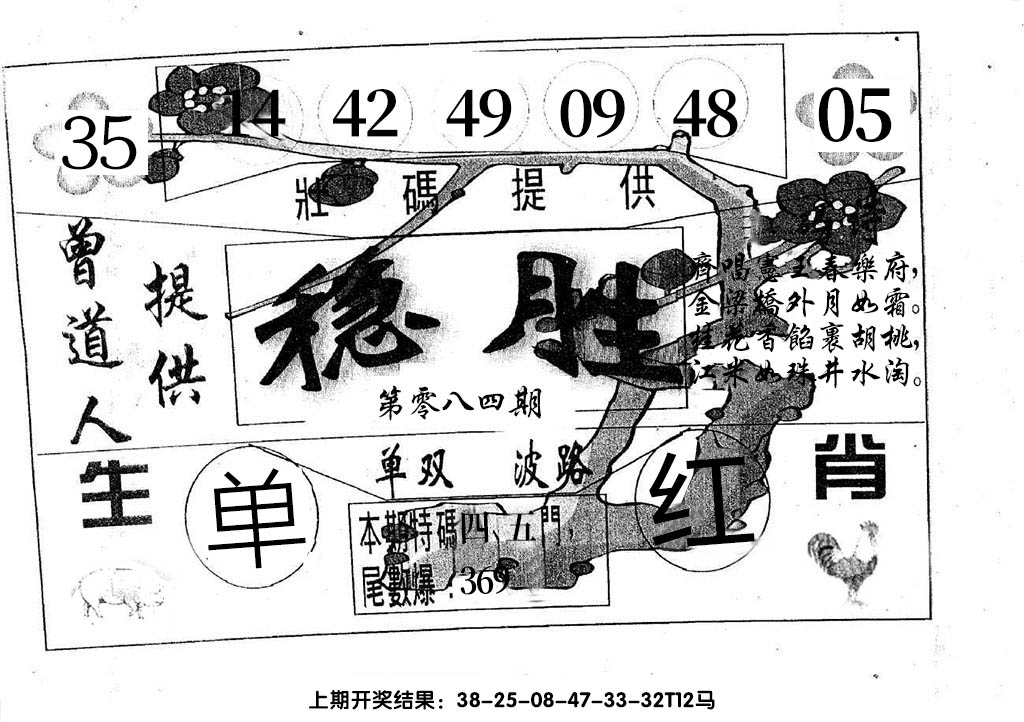 35 14 42 49 09 48 05
壯碼提供
特
曾道人
提供
稳胜
第零八四期
齊唱憲王春樂府，
金梁橋外月如霜。
桂花香餡裹胡桃，
江米如珠井水淘。
单双 波路
生肖
单
红
本期特碼四、五門，
尾數爆：369
上期开奖结果：38-25-08-47-33-32T12马